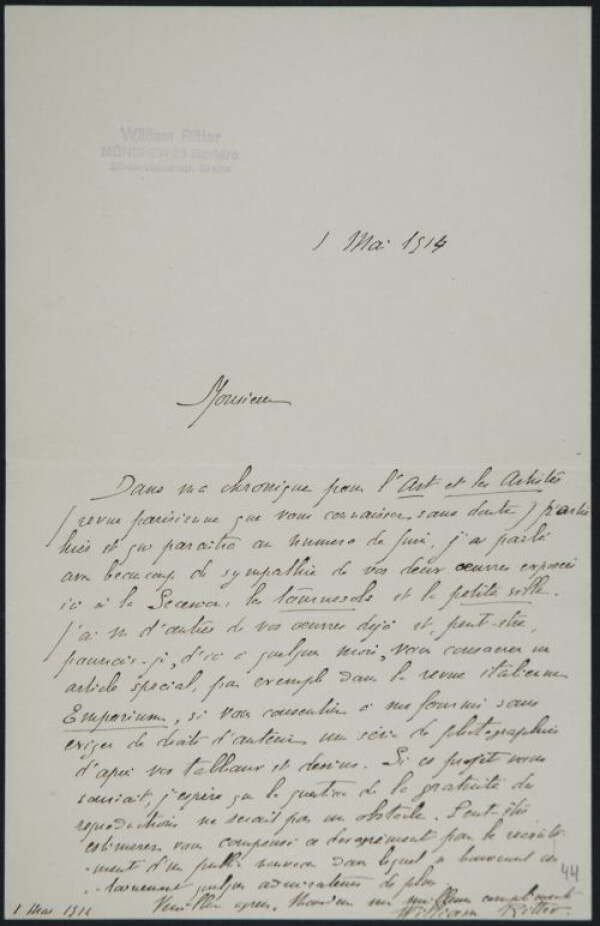 William Ritter
MÜNCHEN
1 Mai 1914
Monsieur
Dans ma chronique pour l'Art et les Artistes
(revue parisienne que vous connaissez sans doute)
et qui paraîtra au numero de Juin, j'ai parlé
avec beaucoup de sympathie de vos deux œuvres exposées
ici à la Secession, les tournesols et la petite ville.
J'ai vu d'autres de vos œuvres déjà et, peut-être,
pourrais-je, d'ici à quelques mois, vous consacrer un
article spécial, par exemple dans la revue italienne
Emporium, si vous consentiez à me fournir sans
exiger de droits d'auteur une série de photographies
d'après vos tableaux et dessins. Si ce projet vous
souriait, j'espère que la question de la gratuité des
reproductions ne serait pas un obstacle. Peut-être
estimerez vous compensé ce désagrément par le recrute-
-ment d'un public nouveau dans lequel se trouveront cer-
-tainement quelques admirateurs de plus.
Veuillez agréer, Monsieur mes meilleurs compliments
William Ritter.
44
1 Mai 1914